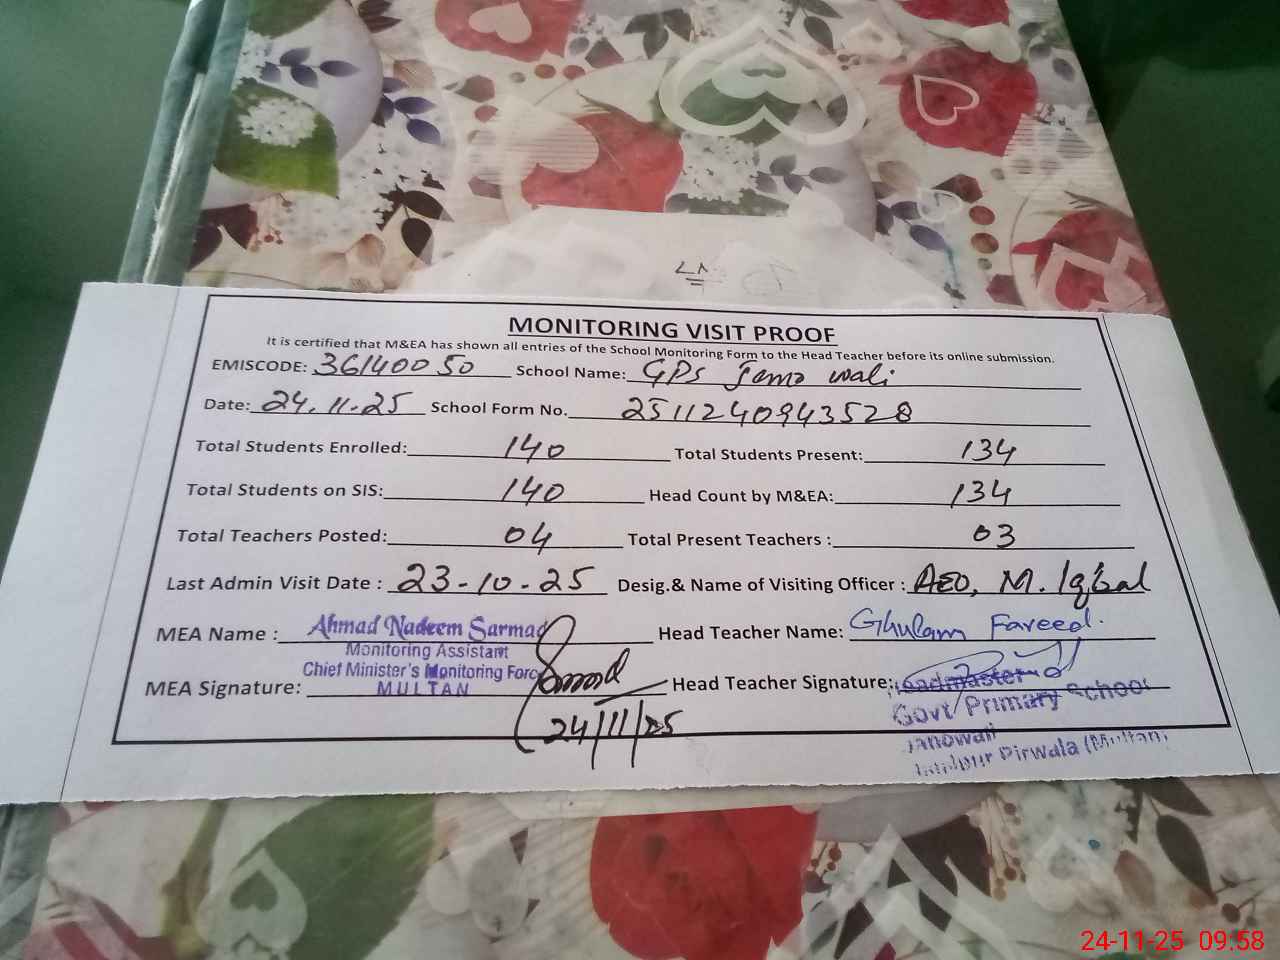 MONITORING VISIT PROOF
It is certified that M&EA has shown all entries of the School Monitoring Form to the Head Teacher before its online submission.
EMISCODE: 36140050 School Name: GPS Jano wali
Date: 24.11.25 School Form No. 2511240943528
Total Students Enrolled: 140 Total Students Present: 134
Total Students on SIS: 140 Head Count by M&EA: 134
Total Teachers Posted: 04 Total Present Teachers : 03
Last Admin Visit Date : 23-10-25 Desig.& Name of Visiting Officer : AEO, M. Iqbal
MEA Name : Ahmad Nadeem Sarmad Head Teacher Name: Ghulam Fareed.
Monitoring Assistant
Chief Minister's Monitoring Forc
MULTAN
MEA Signature: Head Teacher Signature:
24/11/25
Headmaster
Govt Primary School
Janowali
Pirwala (Multan)
24-11-25 09:58